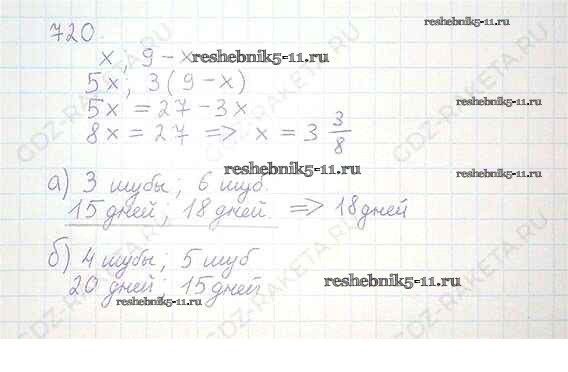 720.
reshebnik5-11.ru
x; 9 - x reshebnik5-11.ru
5x; 3(9 - x)
5x = 27 - 3x
reshebnik5-11.ru
8x = 27 => x = 3 3/8
reshebnik5-11.ru
reshebnik5-11.ru
а) 3 шубы; 6 шуб.
15 дней; 18 дней. => 18 дней
б) 4 шубы; 5 шуб
20 дней, 15 дней
reshebnik5-11.ru
reshebnik5-11.ru
GDZ-RAKETA.RU
GDZ-RAKETA.RU
GDZ-RAKETA.RU
GDZ-RAKETA.RU